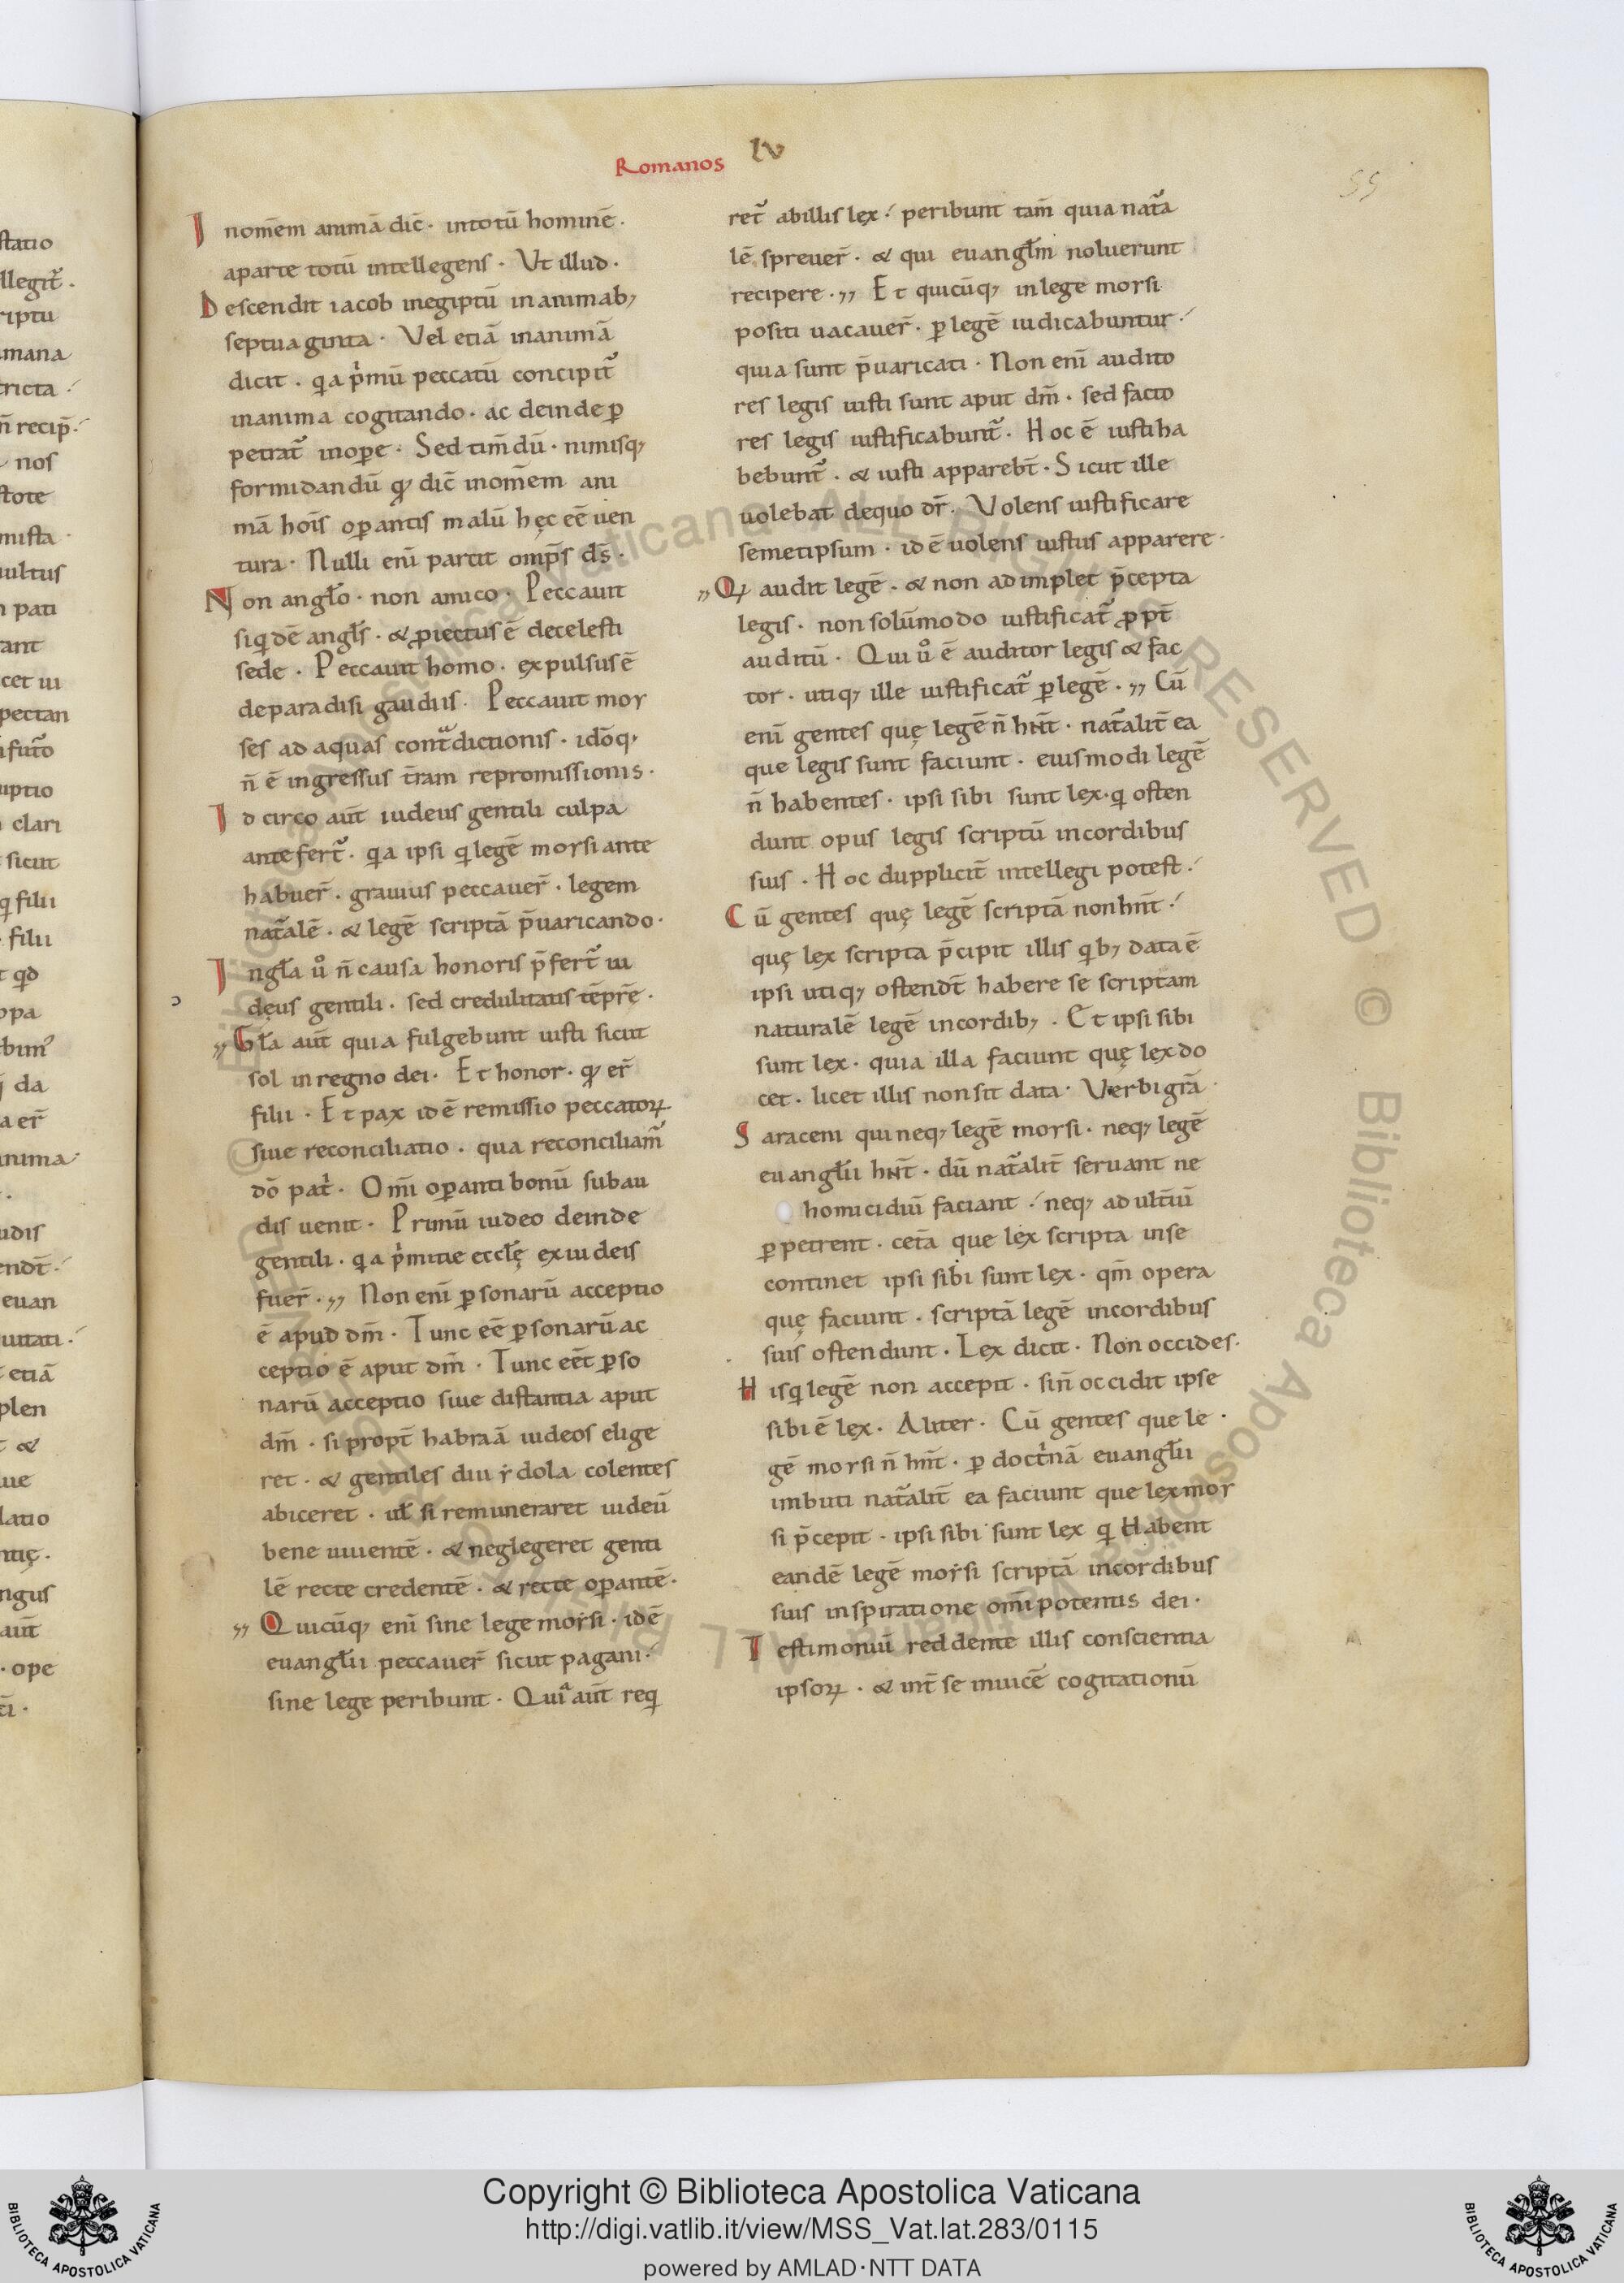 Romanos
lv
55
I nom̄em animā dic̄ · intotū hominē ·
aparte totū intellegens · Ut illud ·
Descendit iacob inegiptū inanimab;
septuaginta · Vel etiā inanimā
dicit · q̇a p̍mū peccatū concipit᷑
inanima cogitando · ac deinde ꝑ
petrat᷑ inoꝑe · Sed tim̄dū · nimisq;
formidandū qđ dic̄ inom̄em ani
mā hoīs oꝑantis malū hęc eē̄ uen
tura · Nulli eni̅ partit omp̄s d̄s ·
Non angƚo · non amico · Peccauit
siqdē angƚs · & ꝓiectus ē decelesti
sede · Peccauit homo · expulsus ē
deparadisi gaudiis · Peccauit moy
ses ad aquas contᷓdictionis · idōq;
n̄ ē ingressus t̄ram repromissionis ·
Idcirco aut̄ iudeus gentili culpa
antefert᷑ · qa ipsi q legē moysi ante
habuer̄ · grauius peccauer̄ · legem
nat᷑alē · & legē scriptā p̄uaricando ·
Ingƚa u̍o n̄ causa honoris p̄fert᷑ iu
dęus gentili · sed credulitatis tēpr̄e ·
„ Gƚa aut̄ quia fulgebunt iusti sicut
sol inregno dei · Et honor · qđ er̄
filii · Et pax idē remissio peccatoꝝ
siue reconciliatio · qua reconciliam᷑
dō pat̍ · Om̄i oꝑanti bonū subau
dis uenit · Primū iudeo deinde
gentili · qa p̍mitie eccƚę exiudeis
fuer̄ · „ Non eni̅ ꝑsonarū acceptio
ē apud dm̄ · Tunc eē̄ ꝑsonarū ac
ceptio ē aput dm̄ · Tunc eēt̄ ꝑso
narū acceptio siue distantia aput
dm̄ · si propt̄ habraā iudeos elige
ret · & gentiles diu ẏdola colentes
abiceret · uƚ si remuneraret iudeū
bene uiuentē · & neglegeret genti
lē recte credentē · & recte oꝑantē ·
„ Quicūq; eni̅ sine lege moẏsi · idē
euangƚii peccauer̄ sicut pagani ·
sine lege peribunt · Quia aut̄ req
ret᷑ abillis lex · peribunt tam̄ quia nat᷑a
lē spreuer̄ · & qui euangƚm noluerunt
recipere · „ Et quicūq; inlege moysi
positi uacauer̄ · ꝑ legē iudicabuntur ·
quia sunt p̄uaricati · Non eni̅ audito
res legis iusti sunt aput dm̄ · sed facto
res legis iustificabunt᷑ · Hoc ē iusti ha
bebunt᷑ · & iusti apparebt̄ · Sicut ille
uolebat dequo dr̄ · Volens iustificare
semetipsum · idē uolens iustus apparere ·
„ Qđ audit legē · & non adimplet p̄cepta
legis · non solūmodo iustificat᷑ ꝓpt̄
auditū · Qui u̍o ē auditor legis & fac
tor · utiq; ille iustificat᷑ ꝑ legē · „ Cū
eni̅ gentes quę legē n̄ hnt̄ · nat᷑alit̄ ea
que legis sunt faciunt · eiusmodi legē
n̄ habentes · ipsi sibi sunt lex · q osten
dunt opus legis scriptū incordibus
suis · Hoc dupplicit̄ intellegi potest ·
Cū gentes quę legē scriptā non hnt̄ ·
quę lex scripta p̄cipit illis qb; data ē
ipsi utiq; ostendt̄ habere se scriptam
naturalē legē incordib; · Et ipsi sibi
sunt lex · quia illa faciunt quę lex do
cet · licet illis non sit data · Verbi gr̄a ·
Saraceni qui neq; legē moysi · neq; legē
euangƚii hnt̄ · dū nat᷑alit̄ seruant ne
homicidiū faciant · neq; adultiū̄
ꝑpetrent · cet̄a que lex scripta inse
continet ipsi sibi sunt lex · qm̄ opera
quę faciunt · scriptā legē incordibus
suis ostendunt · Lex dicit · Non occides ·
His q legē non accepit · si n̄ occidit ipse
sibi ē lex · Aliter · Cū gentes que le ·
gē moysi n̄ hnt̄ · ꝑ doct̍nā euangƚii
imbuti nat᷑alit̄ ea faciunt que lex moy
si p̄cepit · ipsi sibi sunt lex q Habent
eandē legē moẏsi scriptā incordibus
suis inspiratione om̄ipotentis dei ·
Testimoniū reddente illis conscientia
ipsoꝝ · & int̄ se inuicē cogitationū
Copyright © Biblioteca Apostolica Vaticana
http://digi.vatlib.it/view/MSS_Vat.lat.283/0115
powered by AMLAD·NTT DATA
BIBLIOTECA APOSTOLICA VATICANA
BIBLIOTECA APOSTOLICA VATICANA